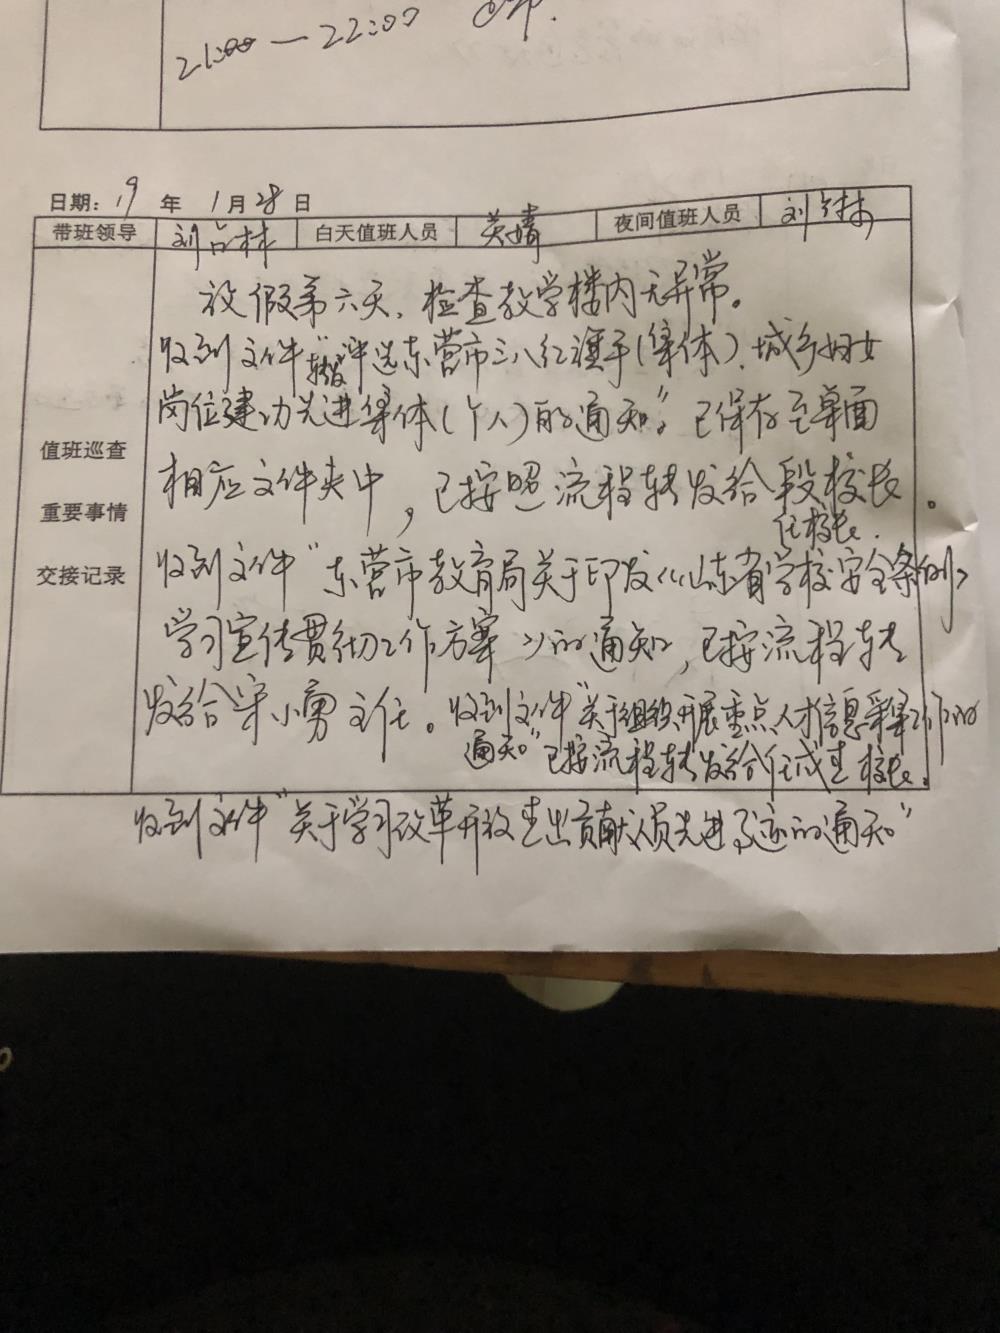 21:00—22:00
日期: 19 年 1月28日
带班领导 刘占林 白天值班人员 英婧 夜间值班人员 刘占林
值班巡查
重要事情
交接记录
放假第六天,检查教学楼内无异常。
收到文件"推荐评选东营市三八红旗手(集体)、城乡妇女
岗位建功先进集体(个人)的通知"。已保存至桌面
相应文件夹中,已按照流程转发给段校长。
任校长.
收到文件"东营市教育局关于印发《《山东省学校安全条例》
学习宣传贯彻工作方案》的通知,已按流程转
发给宋小勇主任。收到文件"关于组织开展重点人才信息采集工作的
通知"已按流程转发给任成生校长。
收到文件"关于学习改革开放杰出贡献人员先进事迹的通知"